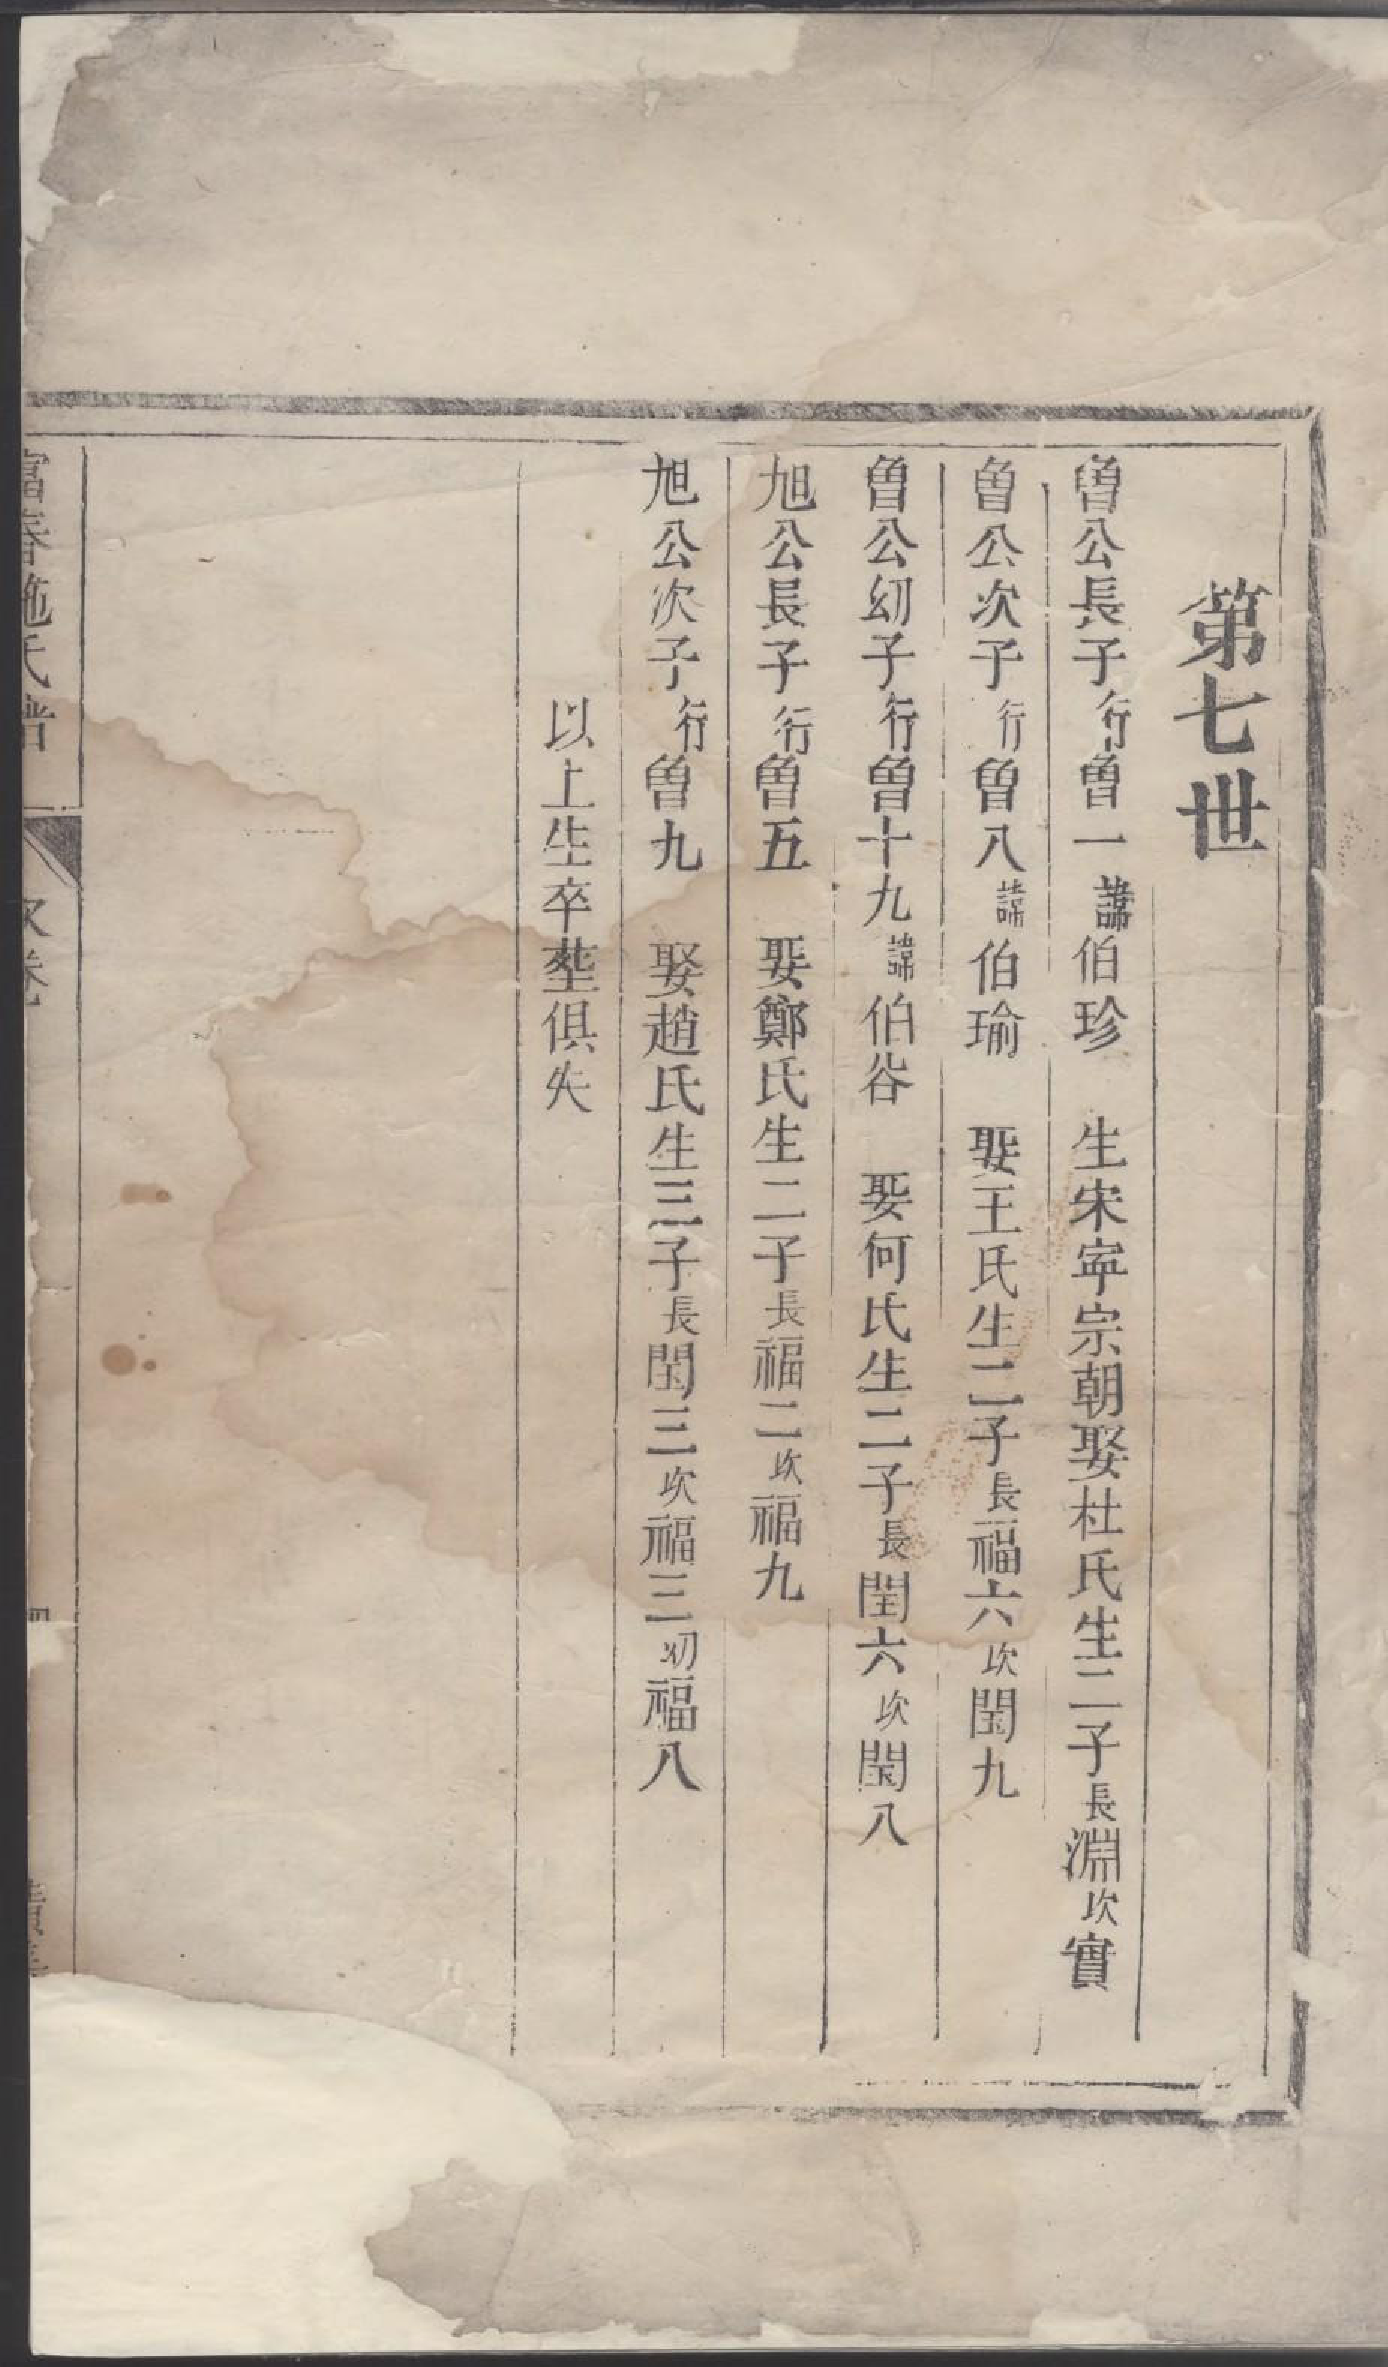 第七世
曾公長子行曾一諱伯珍　生宋寕宗朝娶杜氏生二子長淵次實
曾公次子行曾八諱伯瑜　娶王氏生二子長福六次閏九
曾公幼子行曾十九諱伯谷　娶何氏生二子長閏六次閏八
旭公長子行曾五　娶鄭氏生二子長福二次福九
旭公次子行曾九　娶趙氏生三子長閏三次福三幼福八
以上生卒塟俱失
富春施氏譜　次卷